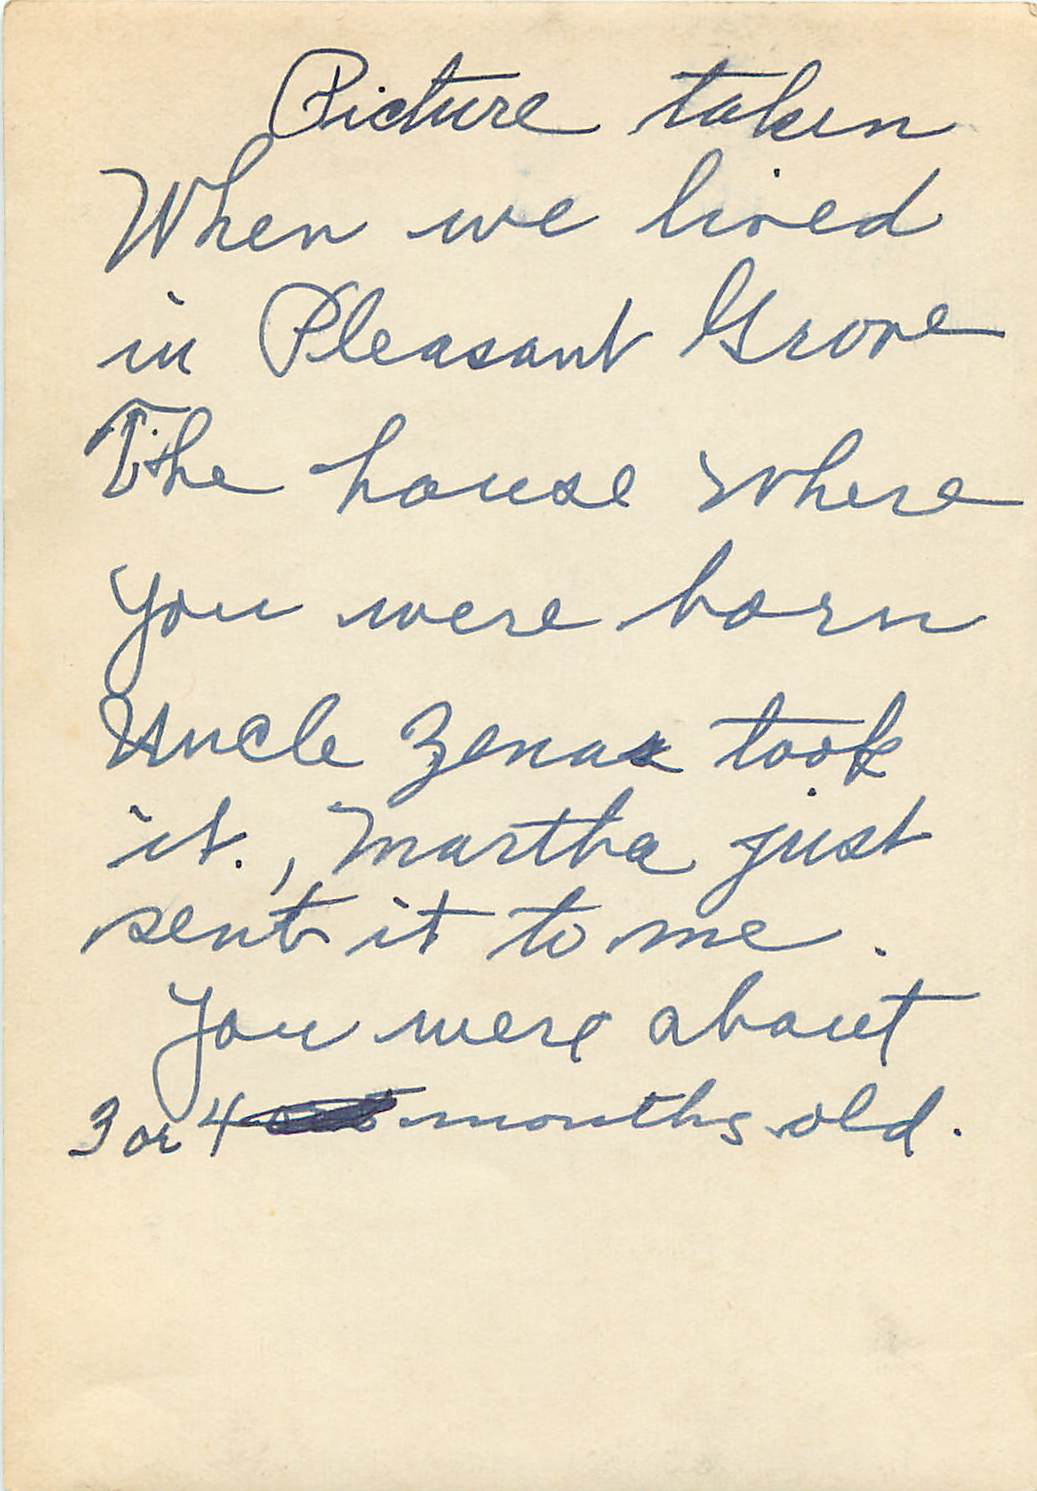 Picture taken
When we lived
in Pleasant Grove
The house where
you were born
Uncle Zenas took
it., Martha just
sent it to me.
You were about
3 or 4 months old.